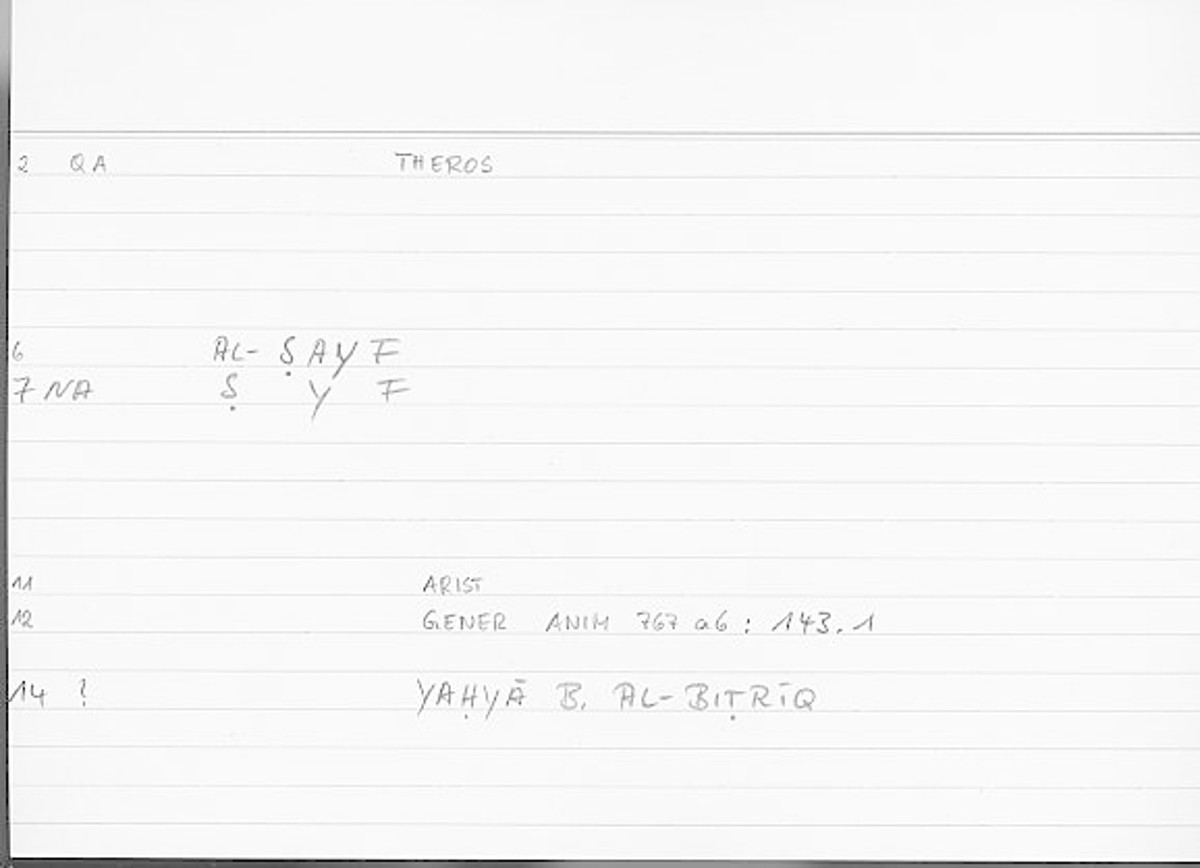 2 QA THEROS
6 AL-ṢAYF
7 NA Ṣ Y F
11 ARIST
12 GENER ANIM 767 a6 : 143.1
14 ? YAḤYĀ B. AL-BIṬRĪQ